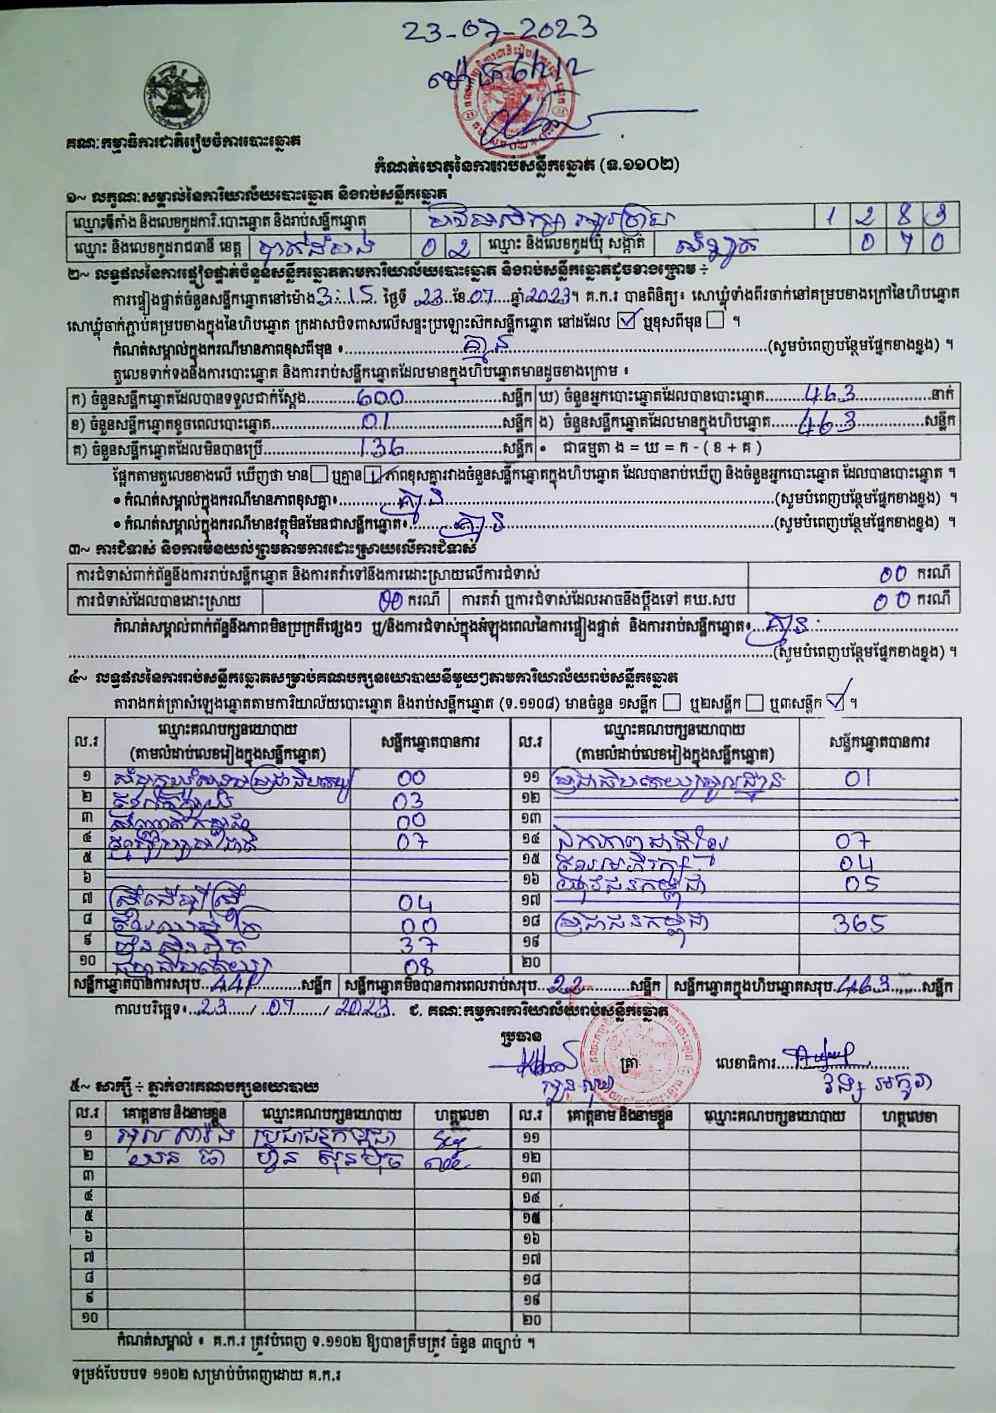 23-07-2023
គណៈកម្មាធិការជាតិរៀបចំការបោះឆ្នោត
កំណត់ហេតុនៃការរាប់សន្លឹកឆ្នោត (ទ.១១០២)
១~ លក្ខណៈសម្គាល់នៃការិយាល័យបោះឆ្នោត និងរាប់សន្លឹកឆ្នោត
ឈ្មោះទីតាំង និងលេខកូដការិ.បោះឆ្នោត និងរាប់សន្លឹកឆ្នោត 1 2 8 3
ឈ្មោះ និងលេខកូដរាជធានី ខេត្ត បាត់ដំបង 0 2 ឈ្មោះ និងលេខកូដឃុំ សង្កាត់ 0 7 0
២~ លទ្ធផលនៃការផ្ទៀងផ្ទាត់ចំនួនសន្លឹកឆ្នោតតាមការិយាល័យបោះឆ្នោត និងរាប់សន្លឹកឆ្នោតដូចខាងក្រោម ÷
ការផ្ទៀងផ្ទាត់ចំនួនសន្លឹកឆ្នោតនៅម៉ោង 3:15 ថ្ងៃទី 23 ខែ 07 ឆ្នាំ 2023។ គ.ក.រ បានពិនិត្យ៖ សោឃ្លុំទាំងពីរចាក់នៅគម្របខាងក្រៅនៃហិបឆ្នោត
សោឃ្លុំចាក់ភ្ជាប់គម្របខាងក្នុងនៃហិបឆ្នោត ក្រដាសបិទពាសលើសន្ទះប្រឡោះស៊កសន្លឹកឆ្នោត នៅដដែល ☑ ឬខុសពីមុន ☐ ។
កំណត់សម្គាល់ក្នុងករណីមានភាពខុសពីមុន ៖ គ្មាន (សូមបំពេញបន្ថែមផ្នែកខាងខ្នង) ។
តួលេខទាក់ទងនឹងការបោះឆ្នោត និងការរាប់សន្លឹកឆ្នោតដែលមានក្នុងហិបឆ្នោតមានដូចខាងក្រោម ៖
ក) ចំនួនសន្លឹកឆ្នោតដែលបានទទួលជាក់ស្តែង 600 សន្លឹក ឃ) ចំនួនអ្នកបោះឆ្នោតដែលបានបោះឆ្នោត 463 នាក់
ខ) ចំនួនសន្លឹកឆ្នោតខូចពេលបោះឆ្នោត 01 សន្លឹក ង) ចំនួនសន្លឹកឆ្នោតដែលមានក្នុងហិបឆ្នោត 463 សន្លឹក
គ) ចំនួនសន្លឹកឆ្នោតដែលមិនបានប្រើ 136 សន្លឹក • ជាធម្មតា ង = ឃ = ក - ( ខ + គ )
ផ្អែកតាមតួលេខខាងលើ ឃើញថា មាន ☐ ឬគ្មាន ☑ ភាពខុសគ្នារវាងចំនួនសន្លឹកឆ្នោតក្នុងហិបឆ្នោត ដែលបានរាប់ឃើញ និងចំនួនអ្នកបោះឆ្នោត ដែលបានបោះឆ្នោត ។
• កំណត់សម្គាល់ក្នុងករណីមានភាពខុសគ្នា៖ គ្មាន (សូមបំពេញបន្ថែមផ្នែកខាងខ្នង) ។
• កំណត់សម្គាល់ក្នុងករណីមានវត្ថុមិនមែនជាសន្លឹកឆ្នោត៖ គ្មាន (សូមបំពេញបន្ថែមផ្នែកខាងខ្នង) ។
៣~ ការជំទាស់ និងការមិនយល់ព្រមតាមការដោះស្រាយលើការជំទាស់
ការជំទាស់ពាក់ព័ន្ធនឹងការរាប់សន្លឹកឆ្នោត និងការតវ៉ាទៅនឹងការដោះស្រាយលើការជំទាស់ 00 ករណី
ការជំទាស់ដែលបានដោះស្រាយ 00 ករណី ការតវ៉ា ឬការជំទាស់ដែលអាចនឹងប្តឹងទៅ គឃ.សប 00 ករណី
កំណត់សម្គាល់ពាក់ព័ន្ធនឹងភាពមិនប្រក្រតីផ្សេងៗ ឬ/និងការជំទាស់ក្នុងអំឡុងពេលនៃការផ្ទៀងផ្ទាត់ និងការរាប់សន្លឹកឆ្នោត៖ គ្មាន
(សូមបំពេញបន្ថែមផ្នែកខាងខ្នង) ។
៤~ លទ្ធផលនៃការរាប់សន្លឹកឆ្នោតសម្រាប់គណបក្សនយោបាយនីមួយៗតាមការិយាល័យរាប់សន្លឹកឆ្នោត
តារាងកត់ត្រាសំឡេងឆ្នោតតាមការិយាល័យបោះឆ្នោត និងរាប់សន្លឹកឆ្នោត (ទ.១១០៨) មានចំនួន ១សន្លឹក ☐ ឬ២សន្លឹក ☐ ឬ៣សន្លឹក ☑ ។
ល.រ ឈ្មោះគណបក្សនយោបាយ (តាមលំដាប់លេខរៀងក្នុងសន្លឹកឆ្នោត) សន្លឹកឆ្នោតបានការ ល.រ ឈ្មោះគណបក្សនយោបាយ (តាមលំដាប់លេខរៀងក្នុងសន្លឹកឆ្នោត) សន្លឹកឆ្នោតបានការ
១ 00 ១១ 01
២ 03 ១២
៣ 00 ១៣
៤ 07 ១៤ ឯកភាពជាតិខ្មែរ 07
៥ ១៥ 04
៦ ១៦ យុវជនកម្ពុជា 05
៧ ស្រីដើម្បីស្រី 04 ១៧
៨ 00 ១៨ ប្រជាជនកម្ពុជា 365
៩ ហ៊្វុនស៊ិនប៉ិច 37 ១៩
១០ 08 ២០
សន្លឹកឆ្នោតបានការសរុប 441 សន្លឹក សន្លឹកឆ្នោតមិនបានការពេលរាប់សរុប 22 សន្លឹក សន្លឹកឆ្នោតក្នុងហិបឆ្នោតសរុប 463 សន្លឹក
កាលបរិច្ឆេទ៖ 23 / 07 / 2023. ជ. គណៈកម្មការការិយាល័យរាប់សន្លឹកឆ្នោត
ប្រធាន
ត្រា លេខាធិការ
៥~ សាក្សី ÷ ភ្នាក់ងារគណបក្សនយោបាយ
ល.រ គោត្តនាម និងនាមខ្លួន ឈ្មោះគណបក្សនយោបាយ ហត្ថលេខា ល.រ គោត្តនាម និងនាមខ្លួន ឈ្មោះគណបក្សនយោបាយ ហត្ថលេខា
១ ប្រជាជនកម្ពុជា ១១
២ ហ៊្វុនស៊ិនប៉ិច ១២
៣ ១៣
៤ ១៤
៥ ១៥
៦ ១៦
៧ ១៧
៨ ១៨
៩ ១៩
១០ ២០
កំណត់សម្គាល់ ៖ គ.ក.រ ត្រូវបំពេញ ទ.១១០២ ឱ្យបានត្រឹមត្រូវ ចំនួន ៣ច្បាប់ ។
ទម្រង់បែបបទ ១១០២ សម្រាប់បំពេញដោយ គ.ក.រ